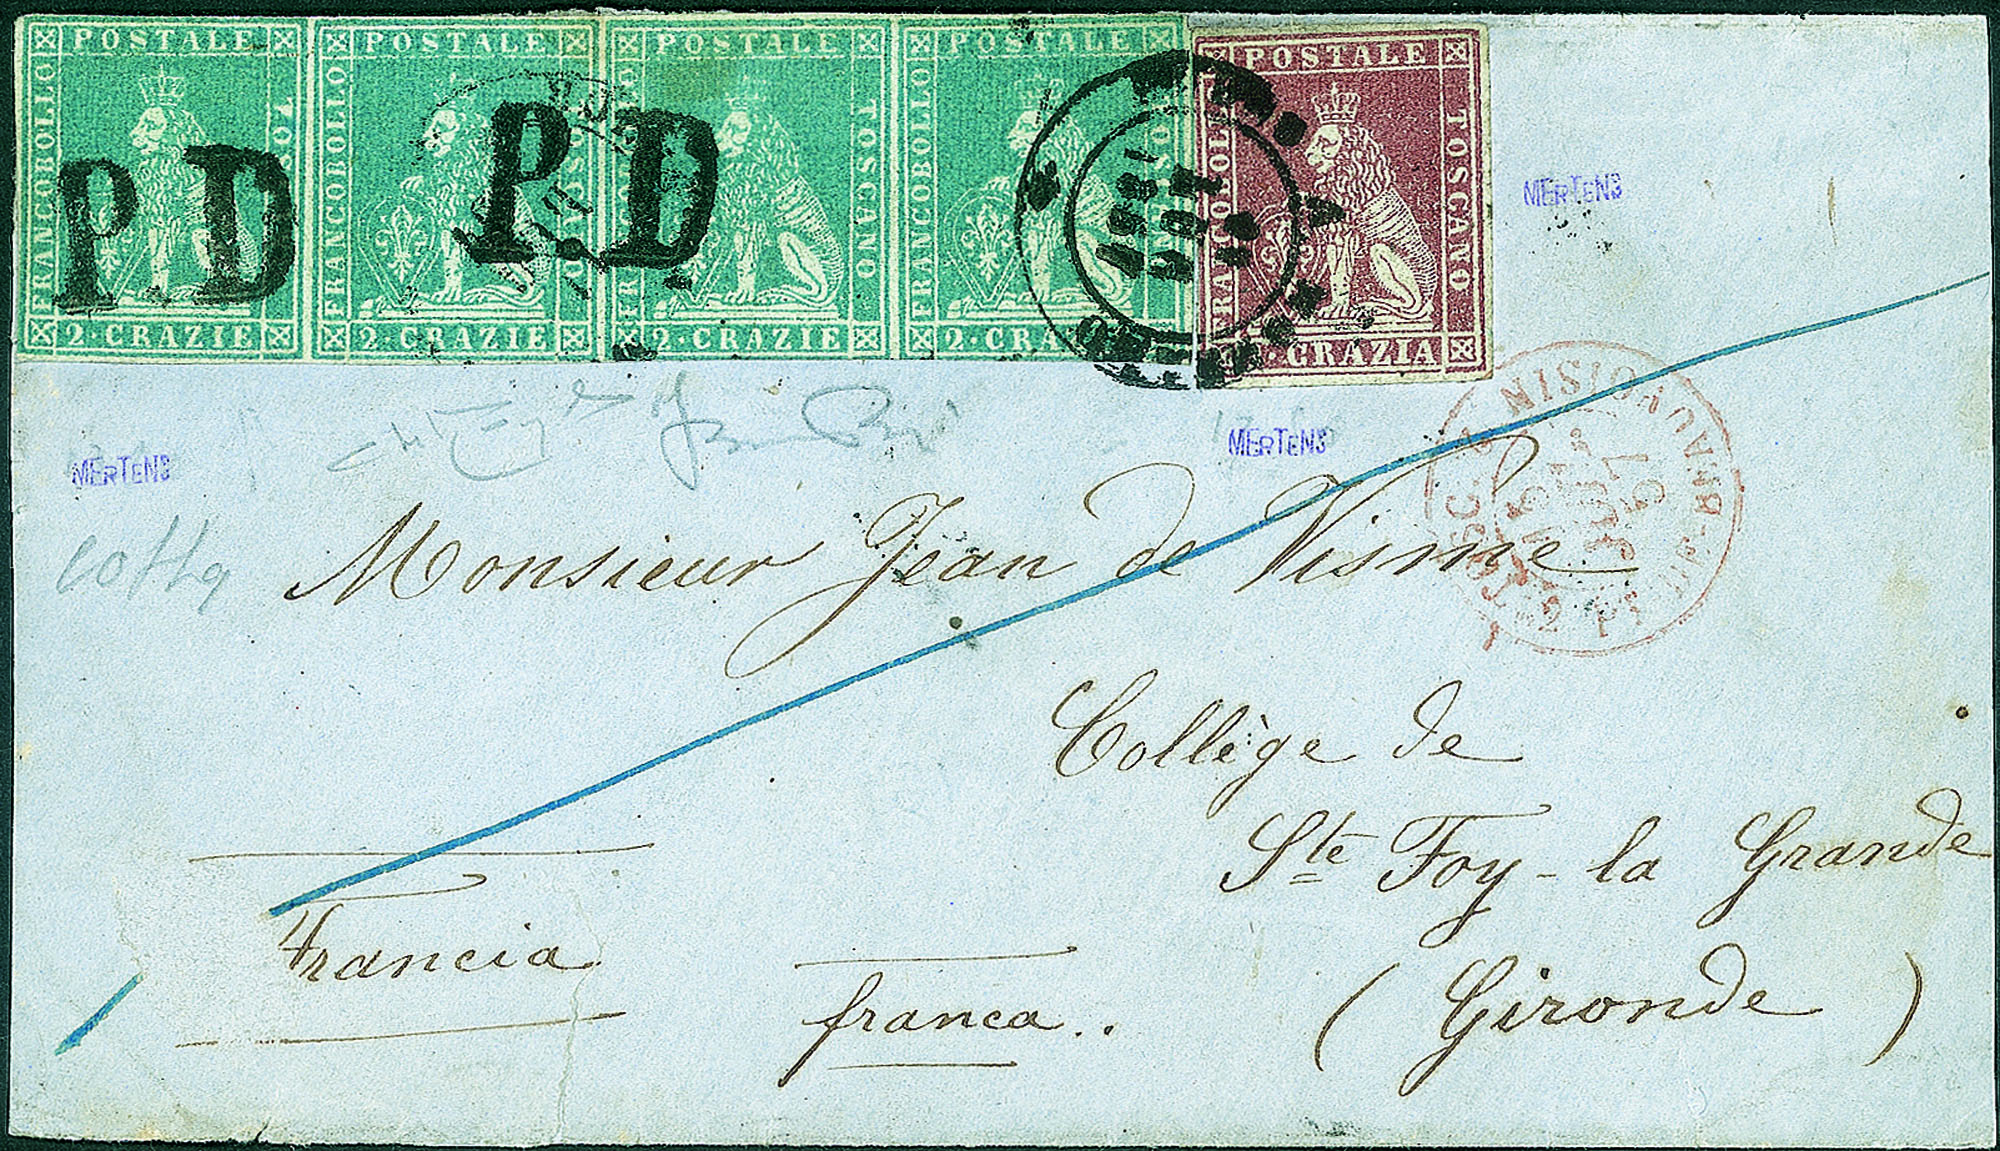 POSTALE
FRANCOBOLLO
TOSC
2·CRAZIE
POSTALE
FRANCOBOLLO
TOSCANO
2·CRAZIE
POSTALE
FRANCOBOLLO
TOSCANO
2·CRAZIE
POSTALE
FRANCOBOLLO
TOSC
2·CRAZIE
POSTALE
FRANCOBOLLO
TOSCANO
GRAZIA
P.D
P.D
MERTENS
MERTENS
MERTENS
TOSC.
Pt DE-BEAUVOISIN 2
JUIL.
Monsieur Jean de Visme
Collège de
Ste Foy-la Grande
(Gironde)
Francia
franca..